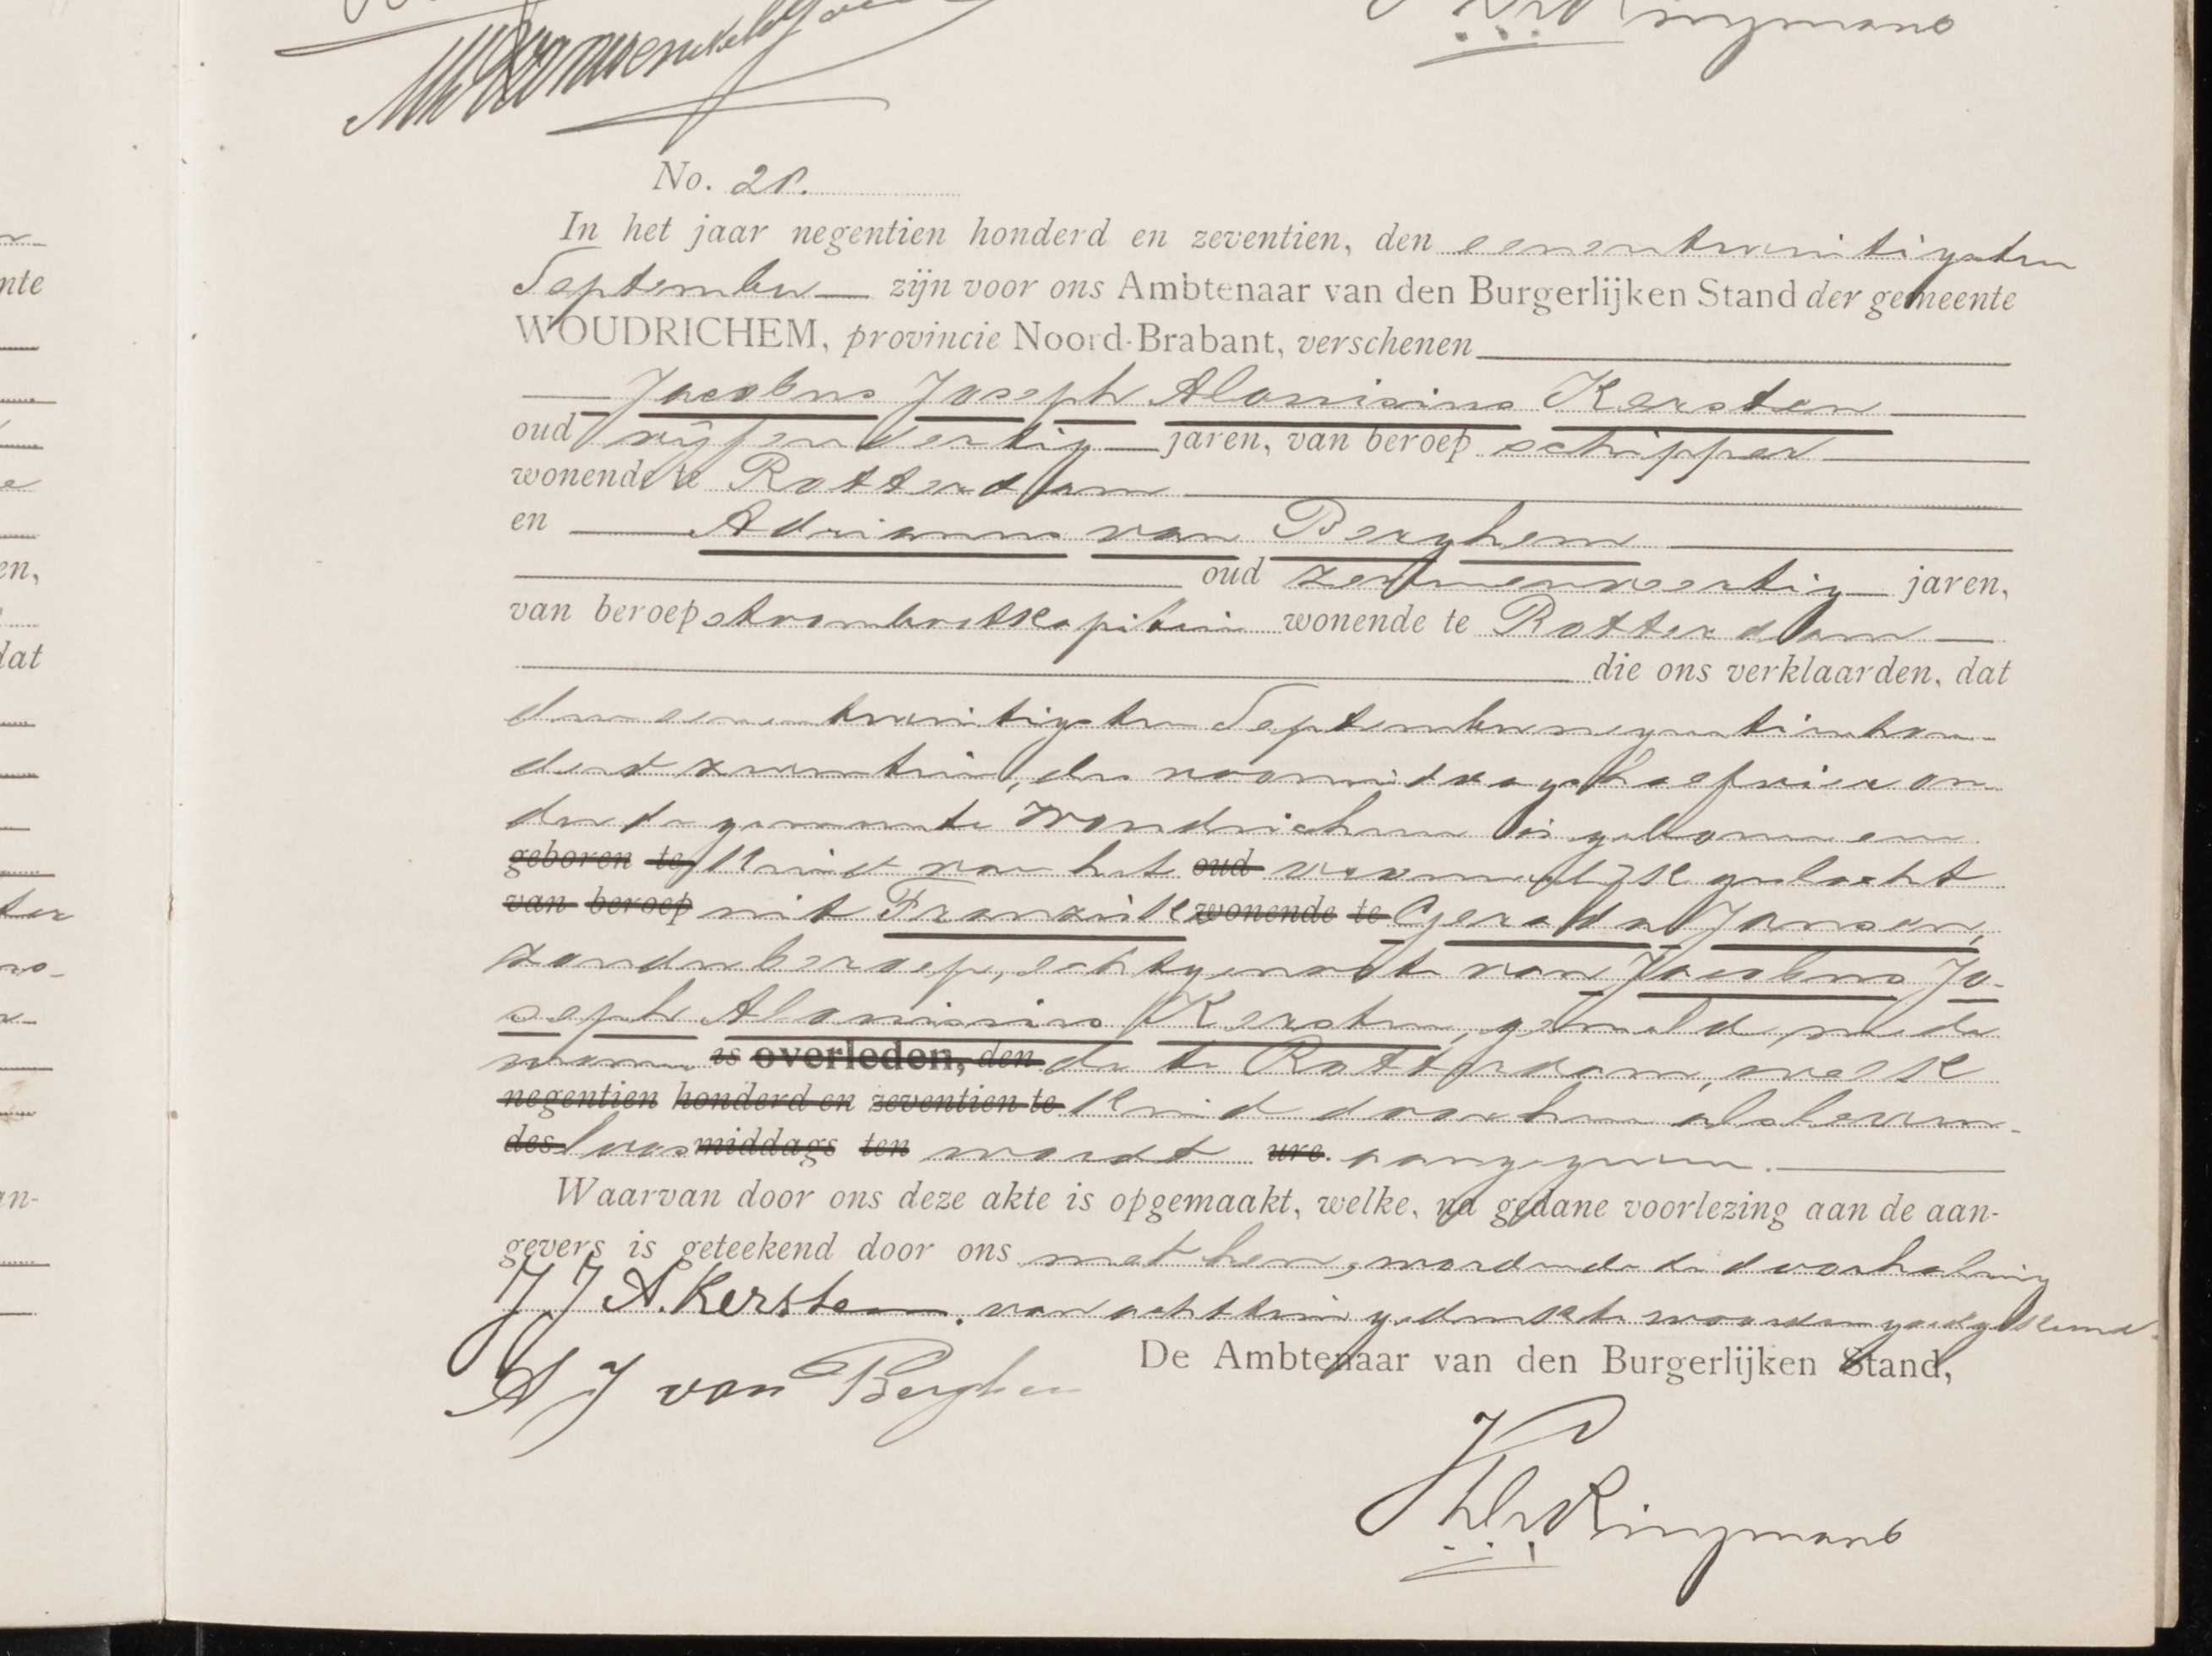 Ringmans
No. 21.
In het jaar negentien honderd en zeventien, den eenentwintigsten
September zijn voor ons Ambtenaar van den Burgerlijken Stand der gemeente
WOUDRICHEM, provincie Noord-Brabant, verschenen
Jacobus Joseph Alouisius Kersten
oud vijfendertig jaren, van beroep schipper
wonende te Rotterdam
en Adrianus van Berghem
oud zevenenveertig jaren,
van beroep stoombootkapitein wonende te Rotterdam
die ons verklaarden, dat
den eenentwintigsten September negentienhon-
derd zeventien, des voormiddags half vier on-
der de gemeente Woudrichem is geboren een
geboren te kind van het oud vrouwelijk geslacht
van beroep uit Franziska wonende te Gerarda Jansen,
zonder beroep, echtgenoote van Jacobus Jo-
seph Alouisius Kersten, gemeld, mede
wonen is overleden, den de te Rotterdam, welk
negentien honderd en zeventien te kind door hen als leven-
des loos middags ten wordt ure. aangegeven.
Waarvan door ons deze akte is opgemaakt, welke, na gedane voorlezing aan de aan-
gevers is geteekend door ons met hen, wordende de doorhaling
J J A. Kersten. van achttien gedrukte woorden goedgekeurd.
De Ambtenaar van den Burgerlijken Stand,
A J van Berghem
Ringmans
nte
en,
dat